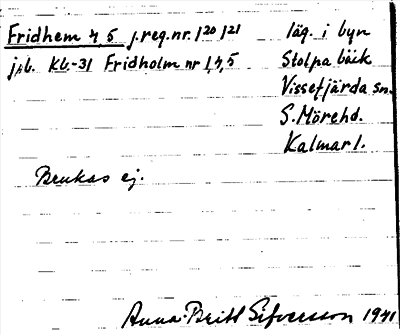 Fridhem 4,5 j.reg.nr. 1²⁰ 1²¹ läg. i byn
j,b. Kb.-31 Fridholm nr 1,4,5 Stolpabäck
Vissefjärda sn.
S. Mörehd.
Kalmar l.
Brukas ej.
Anna-Britt Sifversson 1941